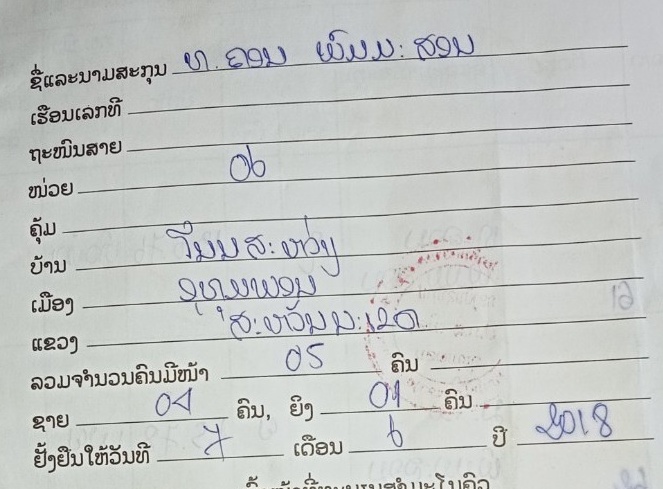 ຊື່ແລະນາມສະກຸນ ທ. ຄານ ພົມມະສານ
ເຮືອນເລກທີ
ຖະໜົນສາຍ
ໜ່ວຍ 06
ຄຸ້ມ
ບ້ານ ໂນນສະຫວ່າງ
ເມືອງ ອຸທຸມພອນ
ແຂວງ ສະຫວັນນະເຂດ
ລວມຈຳນວນຄົນມີໜ້າ 05 ຄົນ
ຊາຍ 04 ຄົນ, ຍິງ 01 ຄົນ
ຢັ້ງຢືນໃຫ້ວັນທີ 7 ເດືອນ 6 ປີ 2018